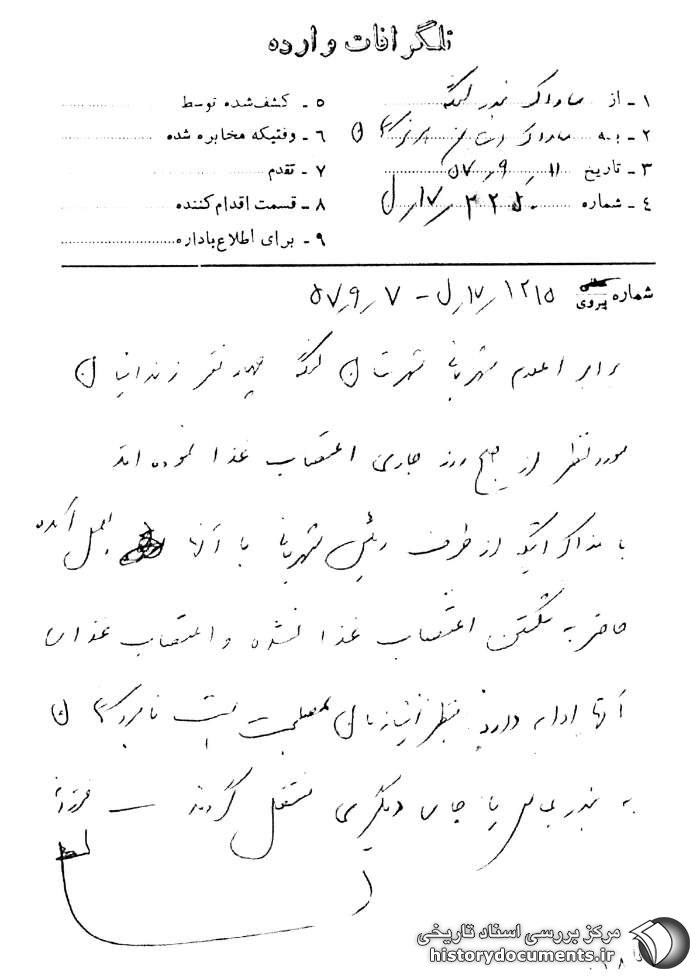 تلگرافات وارده
۱ ـ از ساواک بندر لنگه
۲ ـ به ساواک استان هرمزگان
۳ ـ تاریخ ۱۱ر۹ر۵۷
۴ ـ شماره ۱۷ر ل
۵ ـ کشف‌شده توسط
۶ ـ وقتیکه مخابره شده
۷ ـ تقدم
۸ ـ قسمت اقدام‌کننده
۹ ـ برای اطلاع باداره
شماره پیروی ۱۲۱۵ر۱۷ر ل - ۷ر۹ر۵۷
برابر اعلام شهربانی شهرستان لنگه چهار نفر زندانیان
مورد نظر از صبح روز جاری اعتصاب غذا نموده اند
با مذاکراتیکه از طرف رئیس شهربانی با آنها بعمل آمده
حاضر به شکستن اعتصاب غذا نشده و اعتصاب غذای
آنها ادامه دارد بنظر این سازمان مصلحت است نامبردگان
به بندرعباس یا جای دیگری منتقل گردند — فرزانه
مرکز بررسی اسناد تاریخی
historydocuments.ir